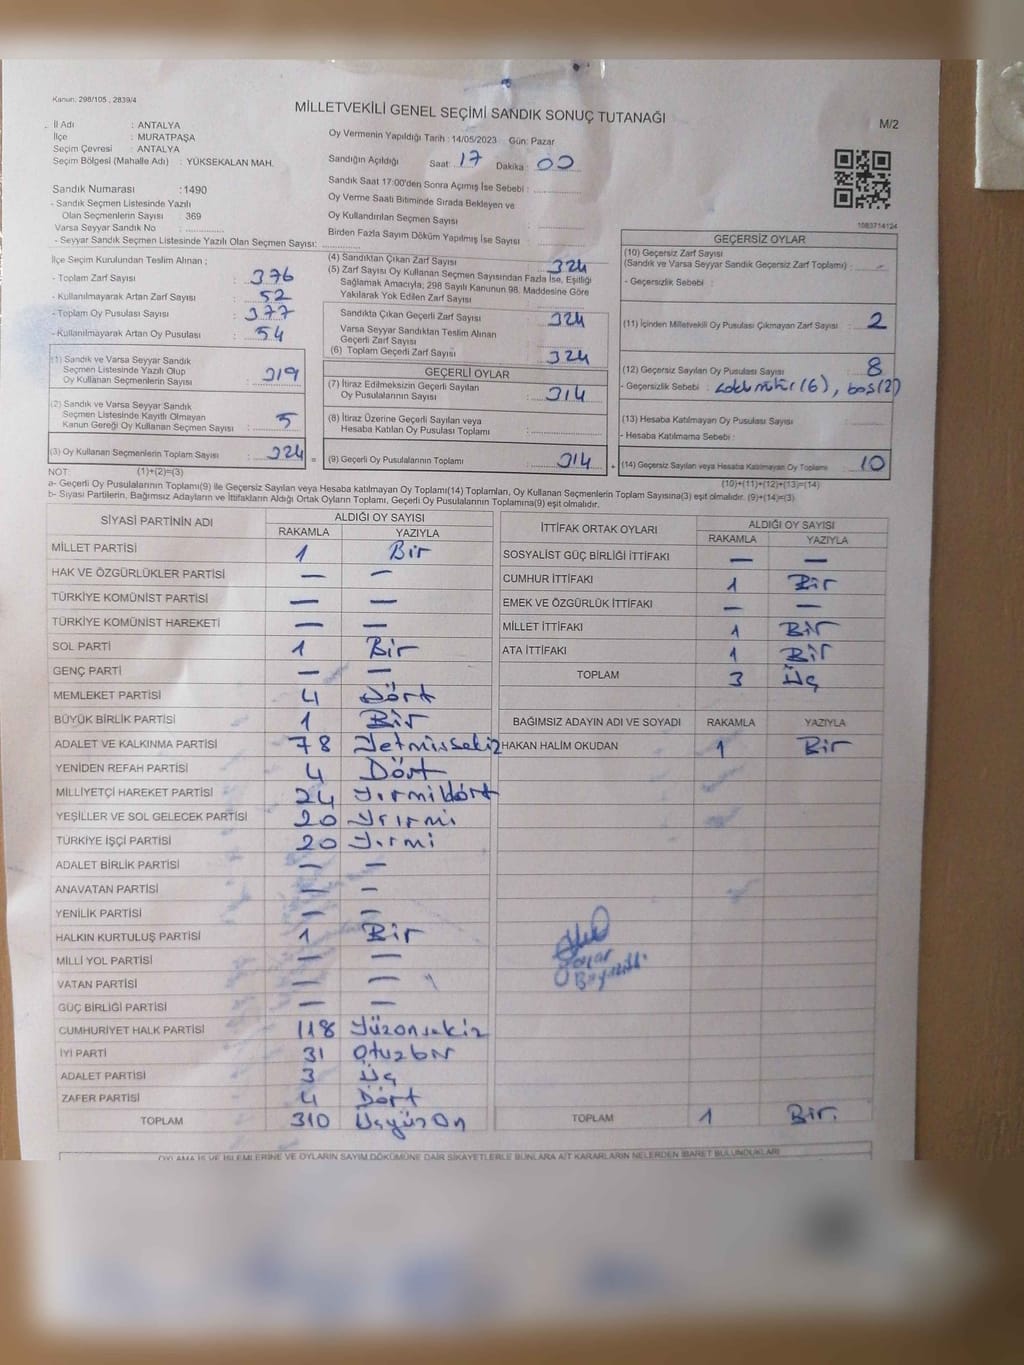 Kanun: 298/105 , 2839/4
MİLLETVEKİLİ GENEL SEÇİMİ SANDIK SONUÇ TUTANAĞI
M/2
İl Adı : ANTALYA
İlçe : MURATPAŞA
Seçim Çevresi : ANTALYA
Seçim Bölgesi (Mahalle Adı) : YÜKSEKALAN MAH.
Sandık Numarası : 1490
- Sandık Seçmen Listesinde Yazılı
Olan Seçmenlerin Sayısı 369
Varsa Seyyar Sandık No :
- Seyyar Sandık Seçmen Listesinde Yazılı Olan Seçmen Sayısı:
Oy Vermenin Yapıldığı Tarih : 14/05/2023 Gün: Pazar
Sandığın Açıldığı Saat : 17 Dakika : 00
Sandık Saat 17:00'den Sonra Açımış İse Sebebi :
Oy Verme Saati Bitiminde Sırada Bekleyen ve
Oy Kullandırılan Seçmen Sayısı
Birden Fazla Sayım Döküm Yapılmış İse Sayısı
1083714124
İlçe Seçim Kurulundan Teslim Alınan ;
- Toplam Zarf Sayısı : 376
- Kullanılmayarak Artan Zarf Sayısı : 52
- Toplam Oy Pusulası Sayısı : 377
- Kullanılmayarak Artan Oy Pusulası : 54
(1) Sandık ve Varsa Seyyar Sandık
Seçmen Listesinde Yazılı Olup
Oy Kullanan Seçmenlerin Sayısı : 319
(2) Sandık ve Varsa Seyyar Sandık
Seçmen Listesinde Kayıtlı Olmayan
Kanun Gereği Oy Kullanan Seçmen Sayısı : 5
(3) Oy Kullanan Seçmenlerin Toplam Sayısı : 324
(4) Sandıktan Çıkan Zarf Sayısı : 324
(5) Zarf Sayısı Oy Kullanan Seçmen Sayısından Fazla İse, Eşitliği
Sağlamak Amacıyla; 298 Sayılı Kanunun 98. Maddesine Göre
Yakılarak Yok Edilen Zarf Sayısı
Sandıkta Çıkan Geçerli Zarf Sayısı : 324
Varsa Seyyar Sandıktan Teslim Alınan
Geçerli Zarf Sayısı
(6) Toplam Geçerli Zarf Sayısı : 324
GEÇERLİ OYLAR
(7) İtiraz Edilmeksizin Geçerli Sayılan
Oy Pusulalarının Sayısı : 314
(8) İtiraz Üzerine Geçerli Sayılan veya
Hesaba Katılan Oy Pusulası Toplamı
(9) Geçerli Oy Pusulalarının Toplamı : 314
GEÇERSİZ OYLAR
(10) Geçersiz Zarf Sayısı
(Sandık ve Varsa Seyyar Sandık Geçersiz Zarf Toplamı) : -
- Geçersizlik Sebebi :
(11) İçinden Milletvekili Oy Pusulası Çıkmayan Zarf Sayısı : 2
(12) Geçersiz Sayılan Oy Pusulası Sayısı : 8
- Geçersizlik Sebebi : (6), boş(2)
(13) Hesaba Katılmayan Oy Pusulası Sayısı
- Hesaba Katılmama Sebebi :
(14) Geçersiz Sayılan veya Hesaba Katılmayan Oy Toplamı : 10
NOT: (1)+(2)=(3)
(10)+(11)+(12)+(13)=(14)
a- Geçerli Oy Pusulalarının Toplamı(9) ile Geçersiz Sayılan veya Hesaba katılmayan Oy Toplamı(14) Toplamları, Oy Kullanan Seçmenlerin Toplam Sayısına(3) eşit olmalıdır. (9)+(14)=(3)
b- Siyasi Partilerin, Bağımsız Adayların ve İttifakların Aldığı Ortak Oyların Toplamı, Geçerli Oy Pusulalarının Toplamına(9) eşit olmalıdır.
SİYASİ PARTİNİN ADI ALDIĞI OY SAYISI
RAKAMLA YAZIYLA
MİLLET PARTİSİ 1 Bir
HAK VE ÖZGÜRLÜKLER PARTİSİ — —
TÜRKİYE KOMÜNİST PARTİSİ — —
TÜRKİYE KOMÜNİST HAREKETİ — —
SOL PARTİ 1 Bir
GENÇ PARTİ — —
MEMLEKET PARTİSİ 4 Dört
BÜYÜK BİRLİK PARTİSİ 1 Bir
ADALET VE KALKINMA PARTİSİ 78 Yetmissekiz
YENİDEN REFAH PARTİSİ 4 Dört
MİLLİYETÇİ HAREKET PARTİSİ 24 Yırmidört
YEŞİLLER VE SOL GELECEK PARTİSİ 20 Yırımı
TÜRKİYE İŞÇİ PARTİSİ 20 Yırmi
ADALET BİRLİK PARTİSİ — —
ANAVATAN PARTİSİ — —
YENİLİK PARTİSİ — —
HALKIN KURTULUŞ PARTİSİ 1 Bir
MİLLİ YOL PARTİSİ — —
VATAN PARTİSİ — —
GÜÇ BİRLİĞİ PARTİSİ — —
CUMHURİYET HALK PARTİSİ 118 Yüzonsekiz
İYİ PARTİ 31 Otuzbir
ADALET PARTİSİ 3 Üç
ZAFER PARTİSİ 4 Dört
TOPLAM 310 Üçyüz On
İTTİFAK ORTAK OYLARI ALDIĞI OY SAYISI
RAKAMLA YAZIYLA
SOSYALİST GÜÇ BİRLİĞİ İTTİFAKI — —
CUMHUR İTTİFAKI 1 Bir
EMEK VE ÖZGÜRLÜK İTTİFAKI — —
MİLLET İTTİFAKI 1 Bir
ATA İTTİFAKI 1 Bir
TOPLAM 3 Üç
BAĞIMSIZ ADAYIN ADI VE SOYADI RAKAMLA YAZIYLA
HAKAN HALİM OKUDAN 1 Bir
TOPLAM 1 Bir.
OYLAMA İŞ VE İŞLEMLERİNE VE OYLARIN SAYIM DÖKÜMÜNE DAİR ŞİKAYETLERLE BUNLARA AİT KARARLARIN NELERDEN İBARET BULUNDUKLARI